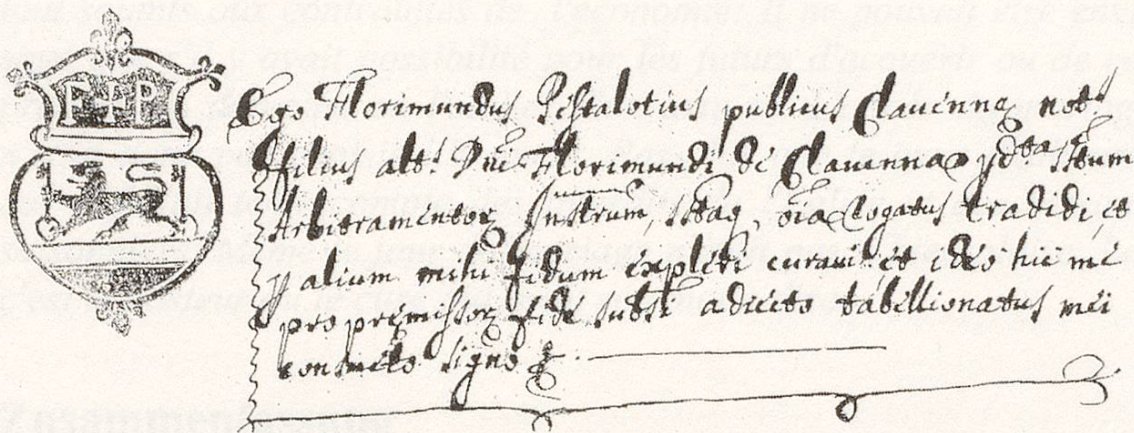 F P
Ego Florimundus Pestalotius publicus Clavennę not.s
filius alt.s Dni Florimundi de Clavenna
Arbitramentor Instrum, rogatus tradidi, et
alium mihi fidum expleri curavi et ideo hic mé
pro premissor fide subsi adiecto tabellionatus mei
consueto signo